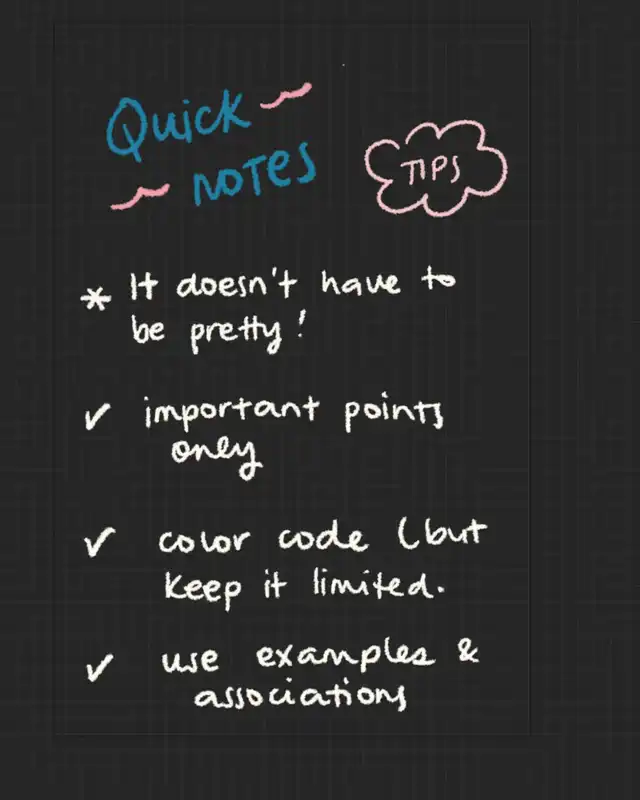 Quick
NOTES
TIPS
* It doesn't have to
be pretty!
✓ important points
only
✓ color code (but
keep it limited.
✓ use examples &
associations